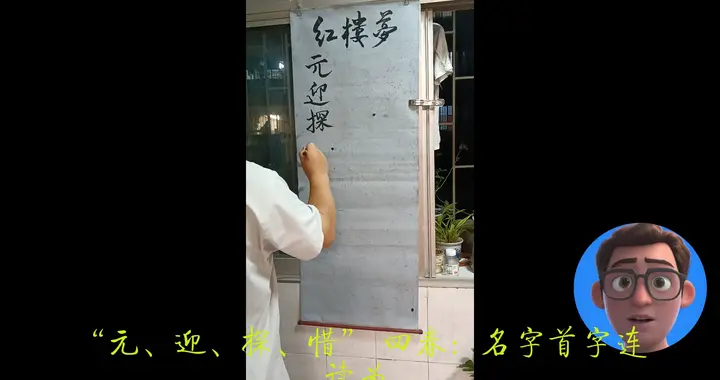 红楼夢
元迎探
“元、迎、探、惜”四春：名字首字连